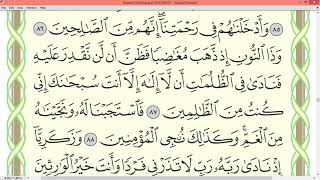 ٨٥ وَأَدْخَلْنَٰهُمْ فِى رَحْمَتِنَآ ۖ إِنَّهُم مِّنَ ٱلصَّٰلِحِينَ ٨٦
وَذَا ٱلنُّونِ إِذ ذَّهَبَ مُغَٰضِبًا فَظَنَّ أَن لَّن نَّقْدِرَ عَلَيْهِ
فَنَادَىٰ فِى ٱلظُّلُمَٰتِ أَن لَّآ إِلَٰهَ إِلَّآ أَنتَ سُبْحَٰنَكَ إِنِّى
كُنتُ مِنَ ٱلظَّٰلِمِينَ ٨٧ فَٱسْتَجَبْنَا لَهُۥ وَنَجَّيْنَٰهُ
مِنَ ٱلْغَمِّ ۚ وَكَذَٰلِكَ نُۨجِى ٱلْمُؤْمِنِينَ ٨٨ وَزَكَرِيَّآ
إِذْ نَادَىٰ رَبَّهُۥ رَبِّ لَا تَذَرْنِى فَرْدًا وَأَنتَ خَيْرُ ٱلْوَٰرِثِينَ